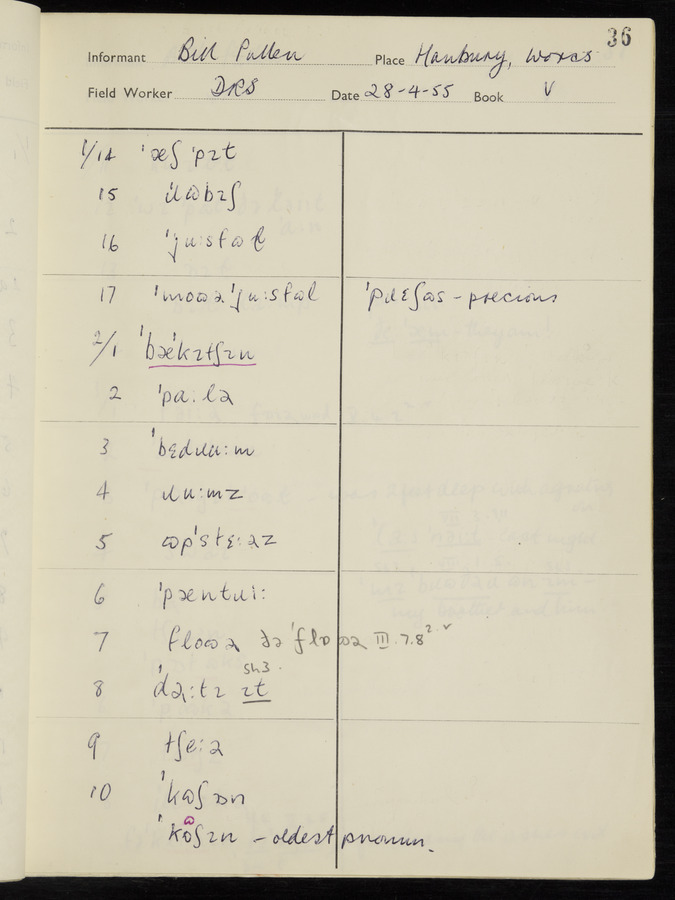 36
Informant Bill Pullen Place Hanbury, Worcs
Field Worker DRS Date 28-4-55 Book V
1/14 ˈæʃ ˈpɪt
15 ˈɹɷbɪʃ
16 ˈjuːsfɷɫ
17 ˈmɷəɹ ˈjuːsfəl ˈpɹɛʃəs - precious
2/1 ˈbæˈkɪtʃɪn
2 ˈpaːlə
3 ˈbɛdɹuːm
4 ɹuːmz
5 ɷpˈstɛːəz
6 ˈpæntɹiː
7 flɷə ðə ˈflɷə III.7.8
8 ˈdəːtɪ ɪt
9 tʃeːə
10 ˈkɷʃən
ˈkɷʃɪn - oldest pronun.